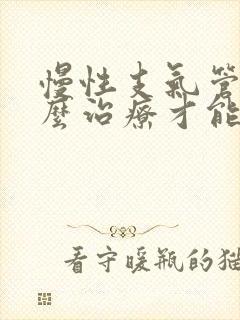 慢性支氣管
麼治療才能
看守暖瓶的猫